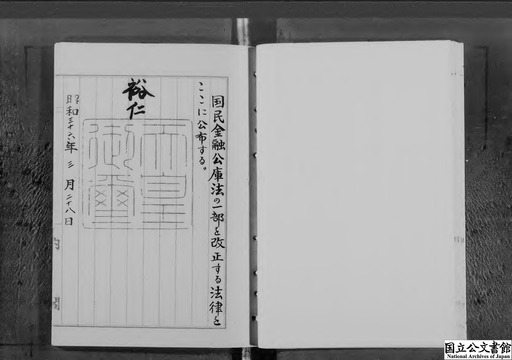 国民金融公庫法の一部を改正する法律を
ここに公布する。
裕仁
天皇
御璽
昭和三十六年三月二十八日
国立公文書館
National Archives of Japan